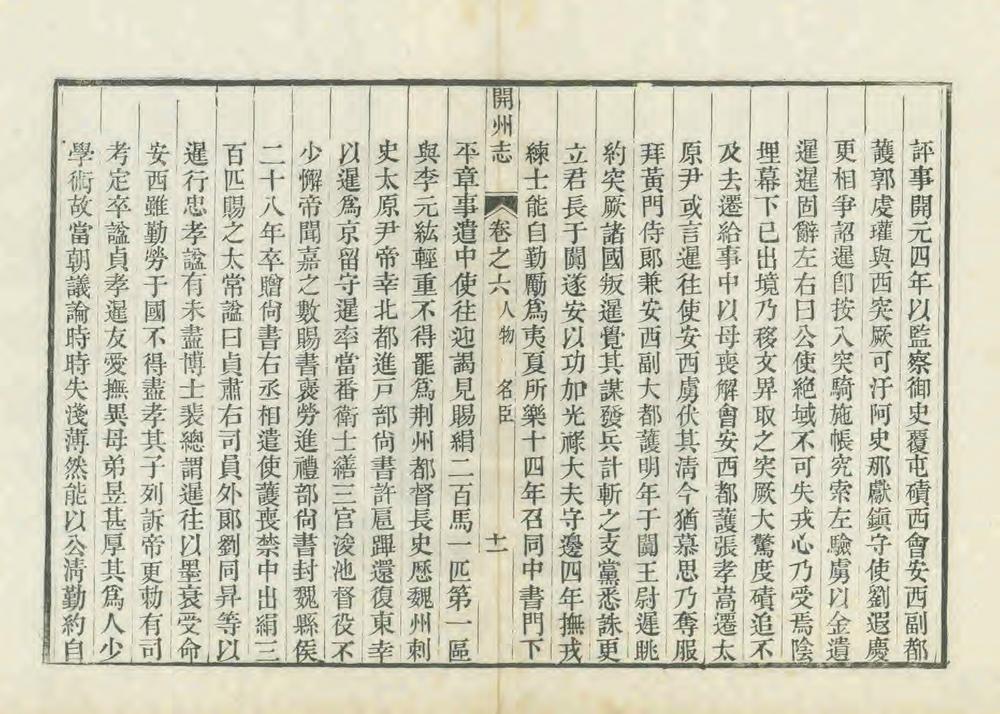 評事開元四年以監察御史覆屯磧西會安西副都
護郭虔瓘與西突厥可汗阿史那獻鎮守使劉遐慶
更相爭詔暹卽按入突騎施帳究索左驗虜以金遺
暹暹固辭左右曰公使絕域不可失戎心乃受焉陰
埋幕下已出境乃移文畀取之突厥大驚度磧追不
及去遷給事中以母喪解會安西都護張孝嵩遷太
原尹或言暹往使安西虜伏其清今猶慕思乃奪服
拜黃門侍郎兼安西副大都護明年于闐王尉遲眺
約突厥諸國叛暹覺其謀發兵計斬之支黨悉誅更
立君長于闐遂安以功加光祿大夫守邊四年撫戎
練士能自勤勵爲夷夏所樂十四年召同中書門下
開州志 卷之六 人物 名臣 十一
平章事遣中使往迎謁見賜絹二百馬一匹第一區
與李元紘輕重不得罷爲荆州都督長史歷魏州刺
史太原尹帝幸北都進戸部尚書許扈蹕還復東幸
以暹爲京留守暹率當番衛士繕三宮浚池督役不
少懈帝聞嘉之數賜書褒勞進禮部尚書封魏縣侯
二十八年卒贈尚書右丞相遣使護喪禁中出絹三
百匹賜之太常謚曰貞肅右司員外郞劉同昇等以
暹行忠孝謚有未盡博士裴總謂暹往以墨衰受命
安西雖勤勞于國不得盡孝其子列訴帝更勅有司
考定卒謚貞孝暹友愛撫異母弟昱甚厚其爲人少
學術故當朝議論時時失淺薄然能以公清勤約自